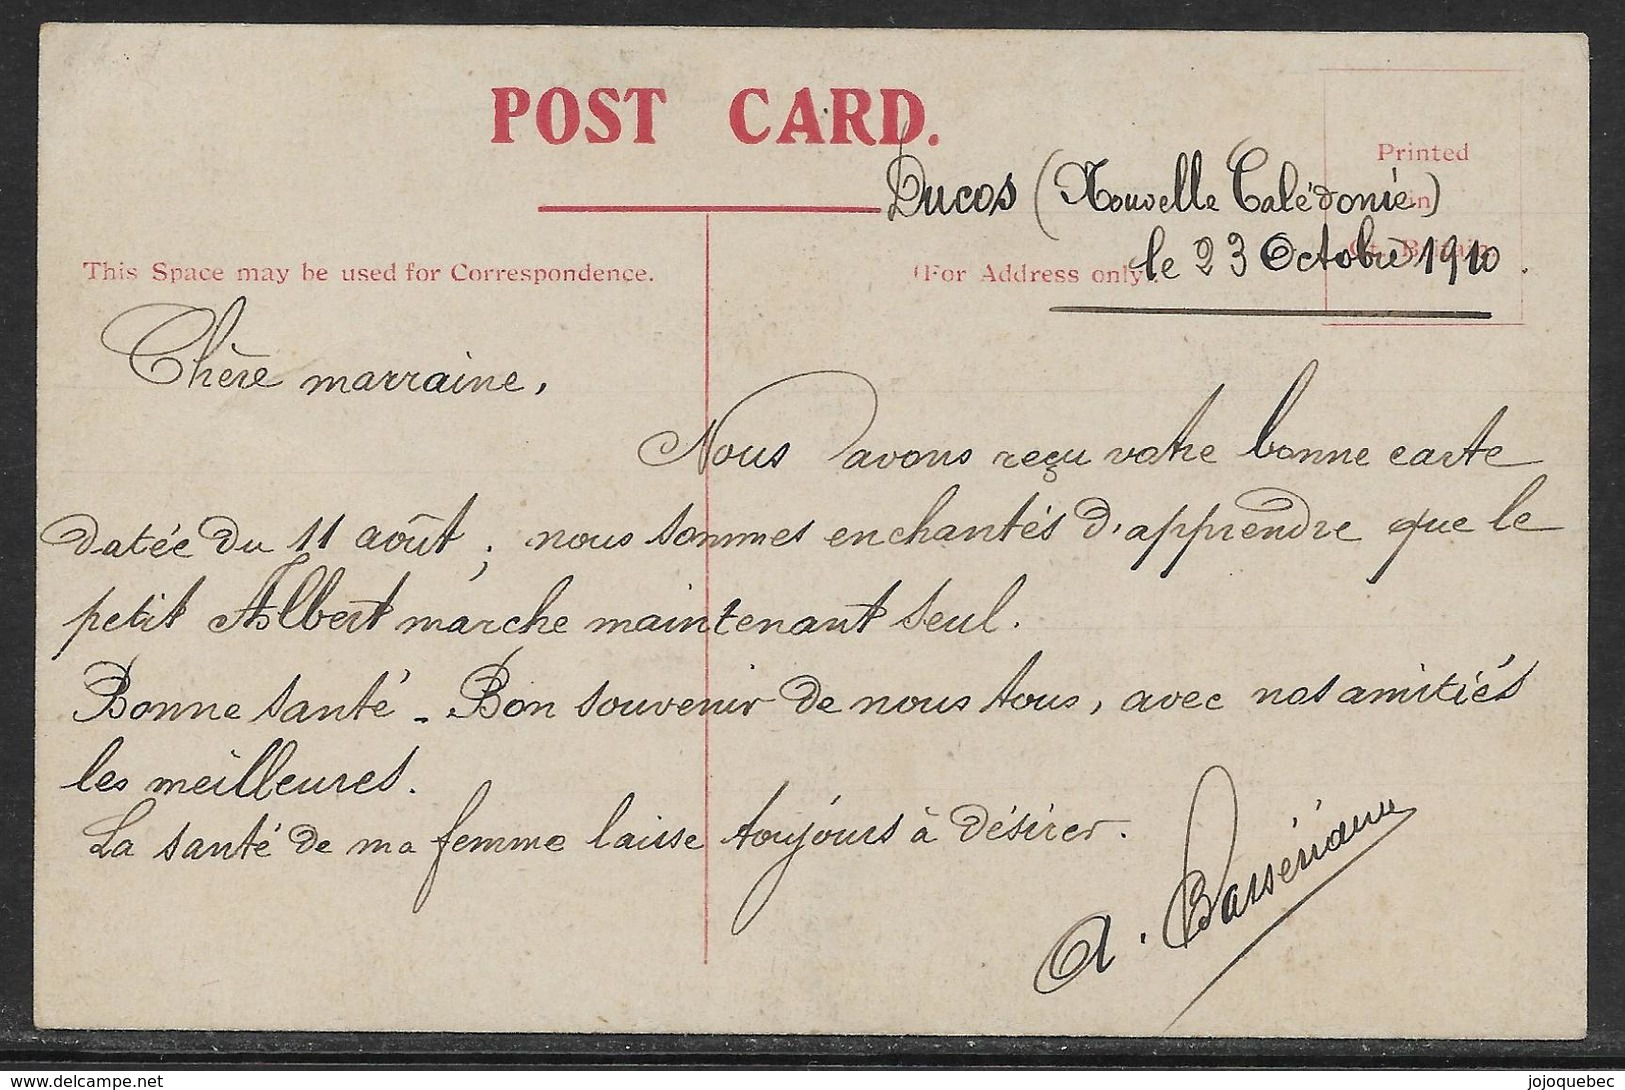 POST CARD.
Printed
in
Gt. Britain.
Ducos (Nouvelle Calédonie)
le 23 Octobre 1910.
This Space may be used for Correspondence.
(For Address only).
Chère marraine,
Nous avons reçu votre bonne carte
datée du 11 août ; nous sommes enchantés d'apprendre que le
petit Albert marche maintenant seul.
Bonne santé - Bon souvenir de nous tous, avec nos amitiés
les meilleures.
La santé de ma femme laisse toujours à désirer.
A.
delcampe.net
jojoquebec